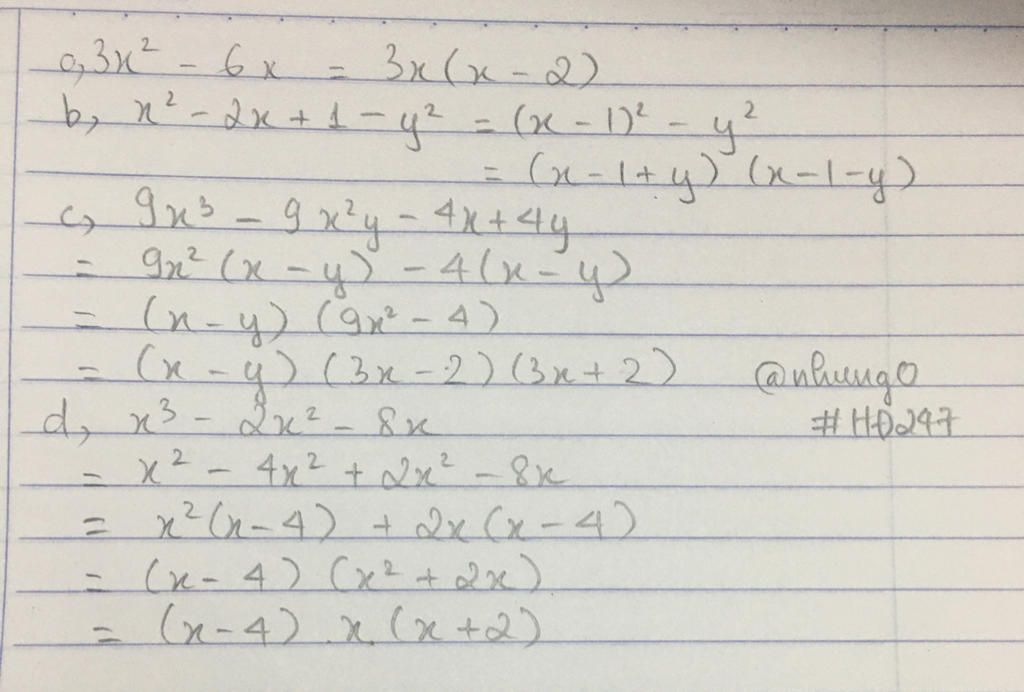 a, 3x² - 6x = 3x(x - 2)
b, x² - 2x + 1 - y² = (x - 1)² - y²
= (x - 1 + y) (x - 1 - y)
c, 9x³ - 9x²y - 4x + 4y
= 9x² (x - y) - 4(x - y)
= (x - y) (9x² - 4)
= (x - y) (3x - 2) (3x + 2)
@nhungo
#HD247
d, x³ - 2x² - 8x
= x² - 4x² + 2x² - 8x
= x²(x - 4) + 2x(x - 4)
= (x - 4) (x² + 2x)
= (x - 4) . x. (x + 2)